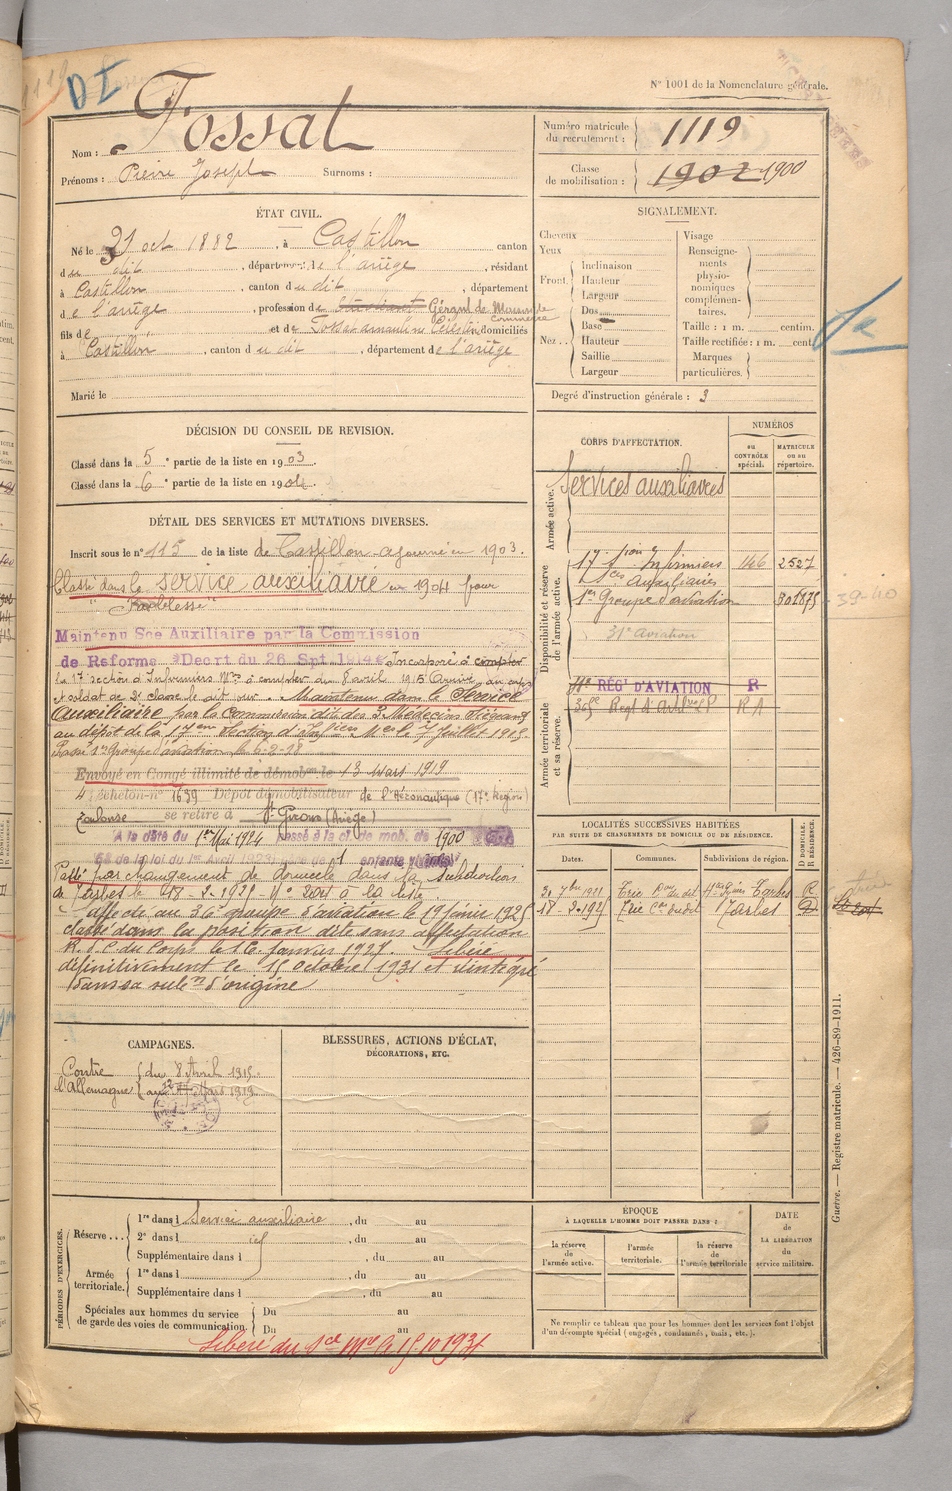 DI
N° 1001 de la Nomenclature générale.
Nom : Fossat
Prénoms : Pierre Joseph Surnoms :
Numéro matricule du recrutement : 1119
Classe de mobilisation : 1902 1900
ÉTAT CIVIL.
Né le 21 oct 1882, à Castillon canton
du dit, département de l'ariège, résidant
à Castillon, canton du dit, département
de l'ariège, profession de Gérant de Maison de Commerce
fils de et de domiciliés
à Castillon, canton du dit, département de l'ariège
Marié le
SIGNALEMENT.
Cheveux
Yeux
Front. Inclinaison
Hauteur
Largeur
Nez.. Dos
Base
Hauteur
Saillie
Largeur
Visage
Renseignements physionomiques complémentaires.
Taille : 1 m. centim.
Taille rectifiée : 1 m. cent.
Marques particulières.
Degré d'instruction générale : 3
DÉCISION DU CONSEIL DE REVISION.
Classé dans la 5e partie de la liste en 1903.
Classé dans la 6e partie de la liste en 1904.
DÉTAIL DES SERVICES ET MUTATIONS DIVERSES.
Inscrit sous le n° 115 de la liste de Castillon ajourné en 1903.
Classé dans le service auxiliaire en 1904 pour
"Faiblesse"
Maintenu Sce Auxiliaire par la Commission
de Reforme (Decrt du 26 Spt 1914) Incorporé à compter
la 17e section d'Infirmiers Mres à compter du 8 avril 1915 Arrivé au corps
et soldat de 2e classe le dit jour. Maintenu dans le Service
Auxiliaire par la Commission dite des 3 Médecins siégeant
au dépôt de la 17ème Section d'Infirmiers Mres le 7 juillet 1915.
Passé 1er Groupe d'aviation le 6-2-18
Envoyé en Congé illimité de démobon le 13 Mars 1919
4e échelon n° 1639 Dépôt démobilisateur de l'Aéronautique (17e Région)
Toulouse se retire à St Girons (Ariège)
A la date du 1er Mai 1924 passé à la cl. de mob. de 1900
de la loi du 1er Avril 1923, père de 1 enfants
Passé par changement de domicile dans la subdivision
de Tarbes le 18-2-1925 N° 2201 à la liste
affecté au 36e groupe d'aviation le 17 février 1925
classé dans la position dite sans affectation
R. d. C. du Corps le 16 Janvier 1927. Libéré
définitivement le 15 octobre 1931 et réintégré
dans sa subon d'origine
CORPS D'AFFECTATION.
NUMÉROS
au CONTRÔLE spécial.
MATRICULE ou au répertoire.
Armée active.
Services auxiliaires
Disponibilité et réserve de l'armée active.
17e Son Infirmiers 146 2527
Sces Auxiliaires
1er Groupe d'aviation 301875
39-40
31e Aviation
Armée territoriale et sa réserve.
RÉGt D'AVIATION R
LOCALITÉS SUCCESSIVES HABITÉES
PAR SUITE DE CHANGEMENTS DE DOMICILE OU DE RÉSIDENCE.
Dates. Communes. Subdivisions de région. D DOMICILE. R RÉSIDENCE.
Trie Tarbes R
18-2-1925 Trie Con dudit Tarbes D
CAMPAGNES.
Contre l'Allemagne du 8 Avril 1915
au Mars 1919
BLESSURES, ACTIONS D'ÉCLAT,
DÉCORATIONS, ETC.
PÉRIODES D'EXERCICES.
Réserve... 1re dans l Service auxiliaire, du au
2e dans l id, du au
Supplémentaire dans l, du au
Armée territoriale. 1re dans l, du au
Supplémentaire dans l, du au
Spéciales aux hommes du service de garde des voies de communication. Du au
Du au
Libéré du Sce Mre le 15.10.1931
ÉPOQUE
À LAQUELLE L'HOMME DOIT PASSER DANS :
la réserve de l'armée active.
l'armée territoriale.
la réserve de l'armée territoriale
DATE de LA LIBÉRATION du service militaire.
Ne remplir ce tableau que pour les hommes dont les services font l'objet
d'un décompte spécial (engagés, condamnés, omis, etc.).
Guerre. — Registre matricule. — 426-89-1911.